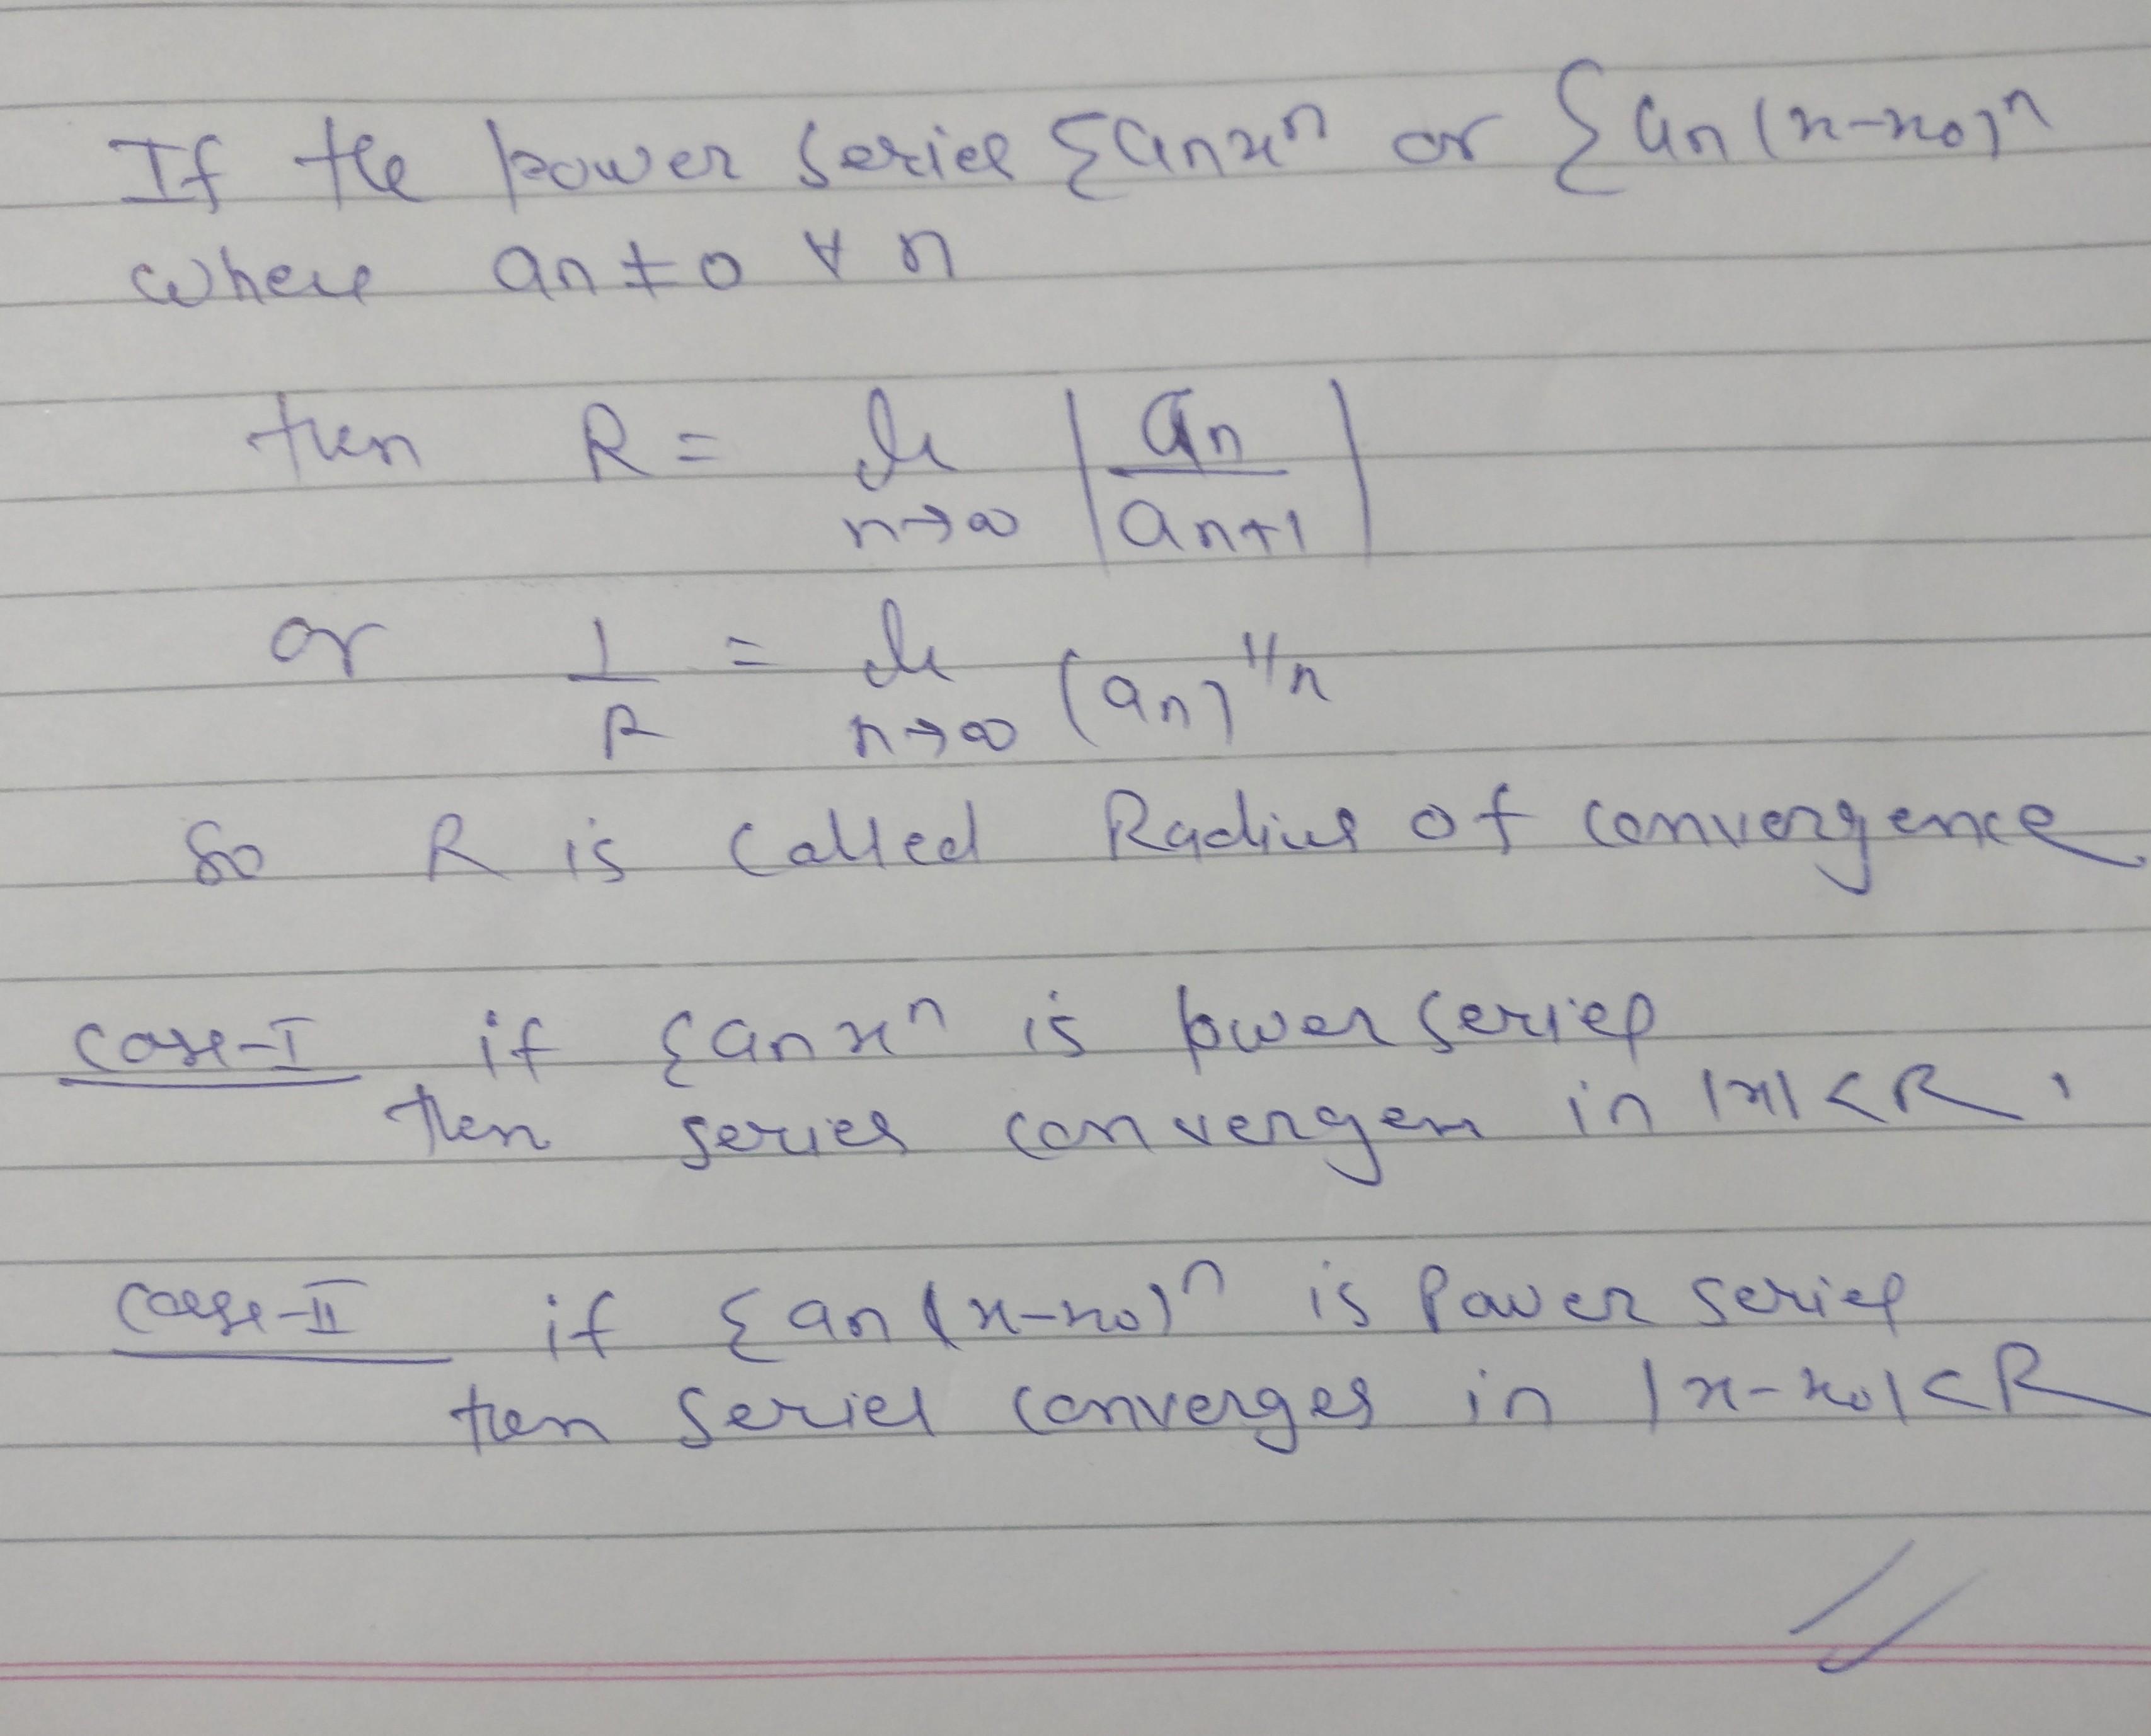 If the power series Σanxⁿ or Σan(x-x₀)ⁿ
where an≠0 ∀ n
then R = lt n→∞ |an/an+1|
or 1/R = lt n→∞ (an)^1/n
So R is called Radius of convergence
Case-I if Σanxⁿ is power series
then series converges in |x|<R.
Case-II if Σan(x-x₀)ⁿ is Power series
then series converges in |x-x₀|<R